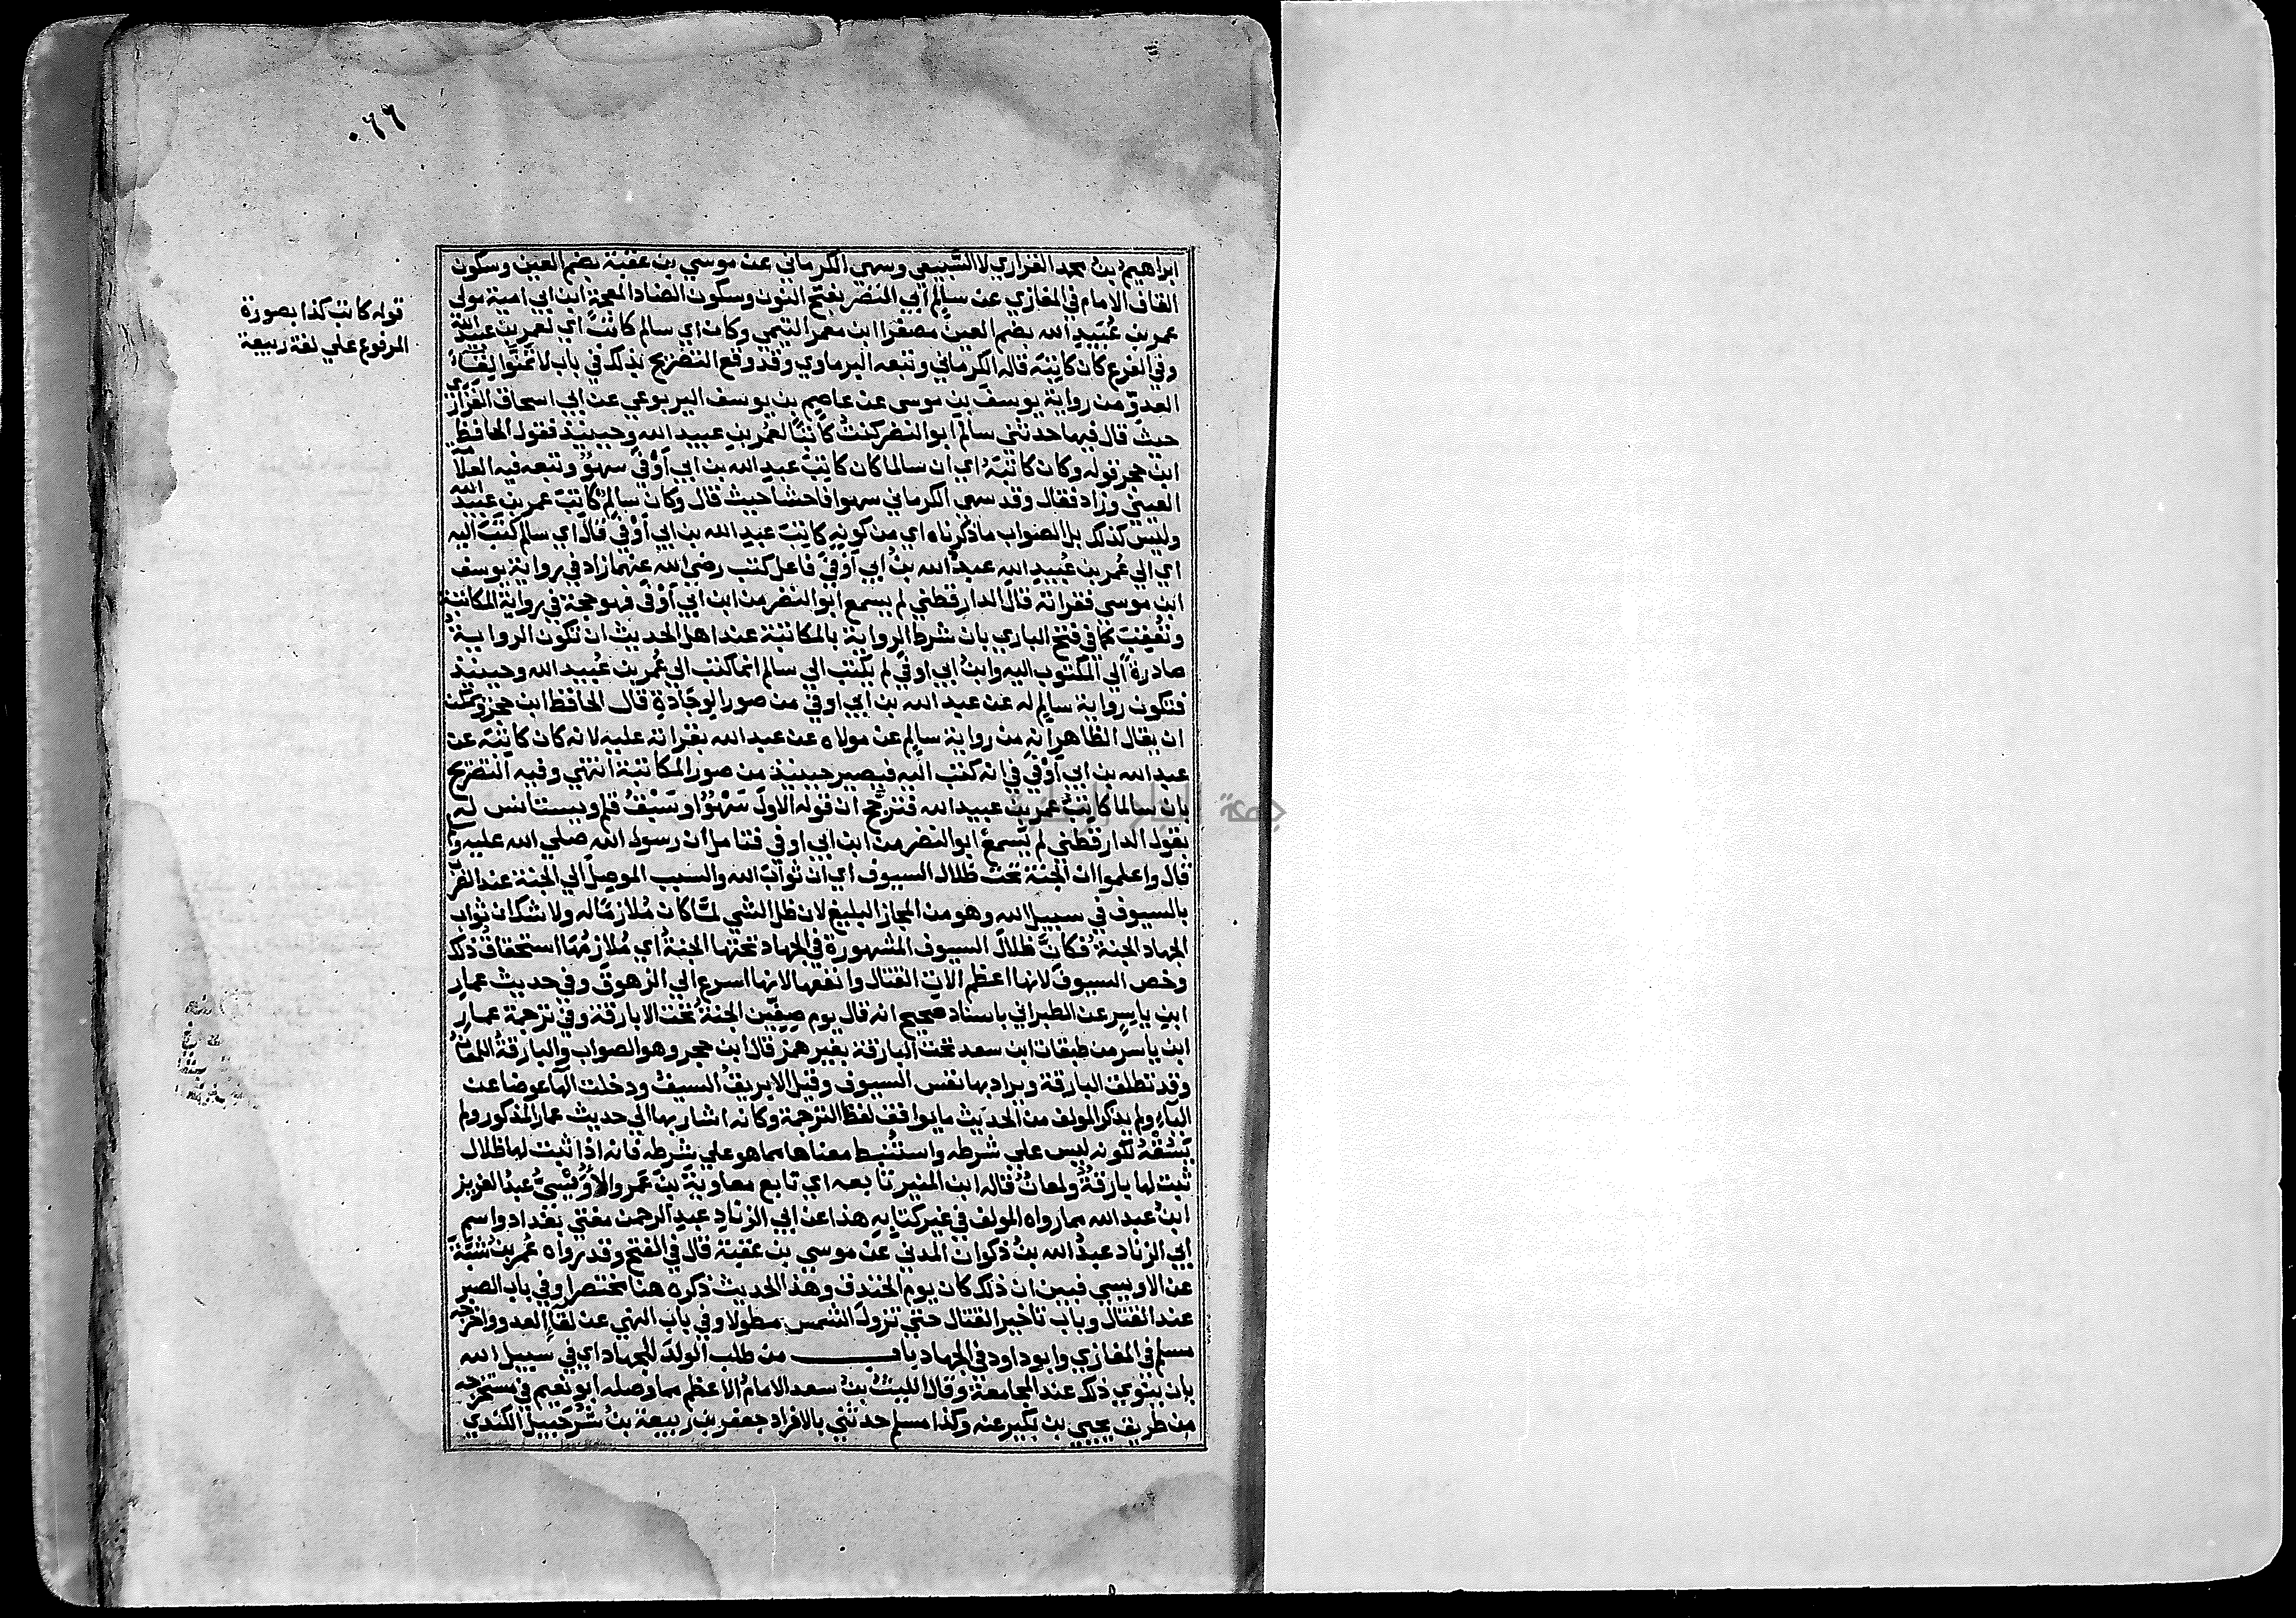 ٠٦٦
ابراهيم بن محمد الفزاري لا السبيعي وسهي الكرماني عن موسي بن عقبة بضم العين وسكون
القاف الامام في المغازي عن سالم ابي النضر بفتح النون وسكون الضاد المعجمة ابن ابي امية مولي
عمر بن عُبَيدِ الله بضم العين مصغرا ابن معمر التيمي وكان اي سالم كاتبٌ اي لعمر بن عبيد الله
وفي الفرع كان كاتِبَه قاله الكرماني وتبعه البرماوي وقد وقع التصريح بذلك في باب لا تَمَنَّوا لِقَاءَ
العدوِّ من رواية يوسفَ بنِ موسى عن عاصمِ بن يوسف اليربوعي عن ابي اسحاق الفزاري
حيث قال فيها حدثني سالم ابو النضر كنتُ كاتبًا لعُمر بنِ عبيد الله وحينيذ فقول الحافظ
ابن حجر قوله وكان كاتبَه اي ان سالما كان كاتِبَ عبدِ الله بن ابي اَوْفَى سهوٌ وتبعه فيه العلاَّ
العيني وزاد فقال وقد سهى الكرماني سهوا فاحشا حيث قال وكان سالمٌ كاتِبَ عمر بنِ عبيد الله
وليس كذلك بل الصواب ماذكرناه اي من كونِهِ كاتِبَ عبدِ الله بن ابي اَوْفَى قال اي سالم كتَبَ اليه
اي الي عُمر بن عُبيدِ الله عبدُ الله بنُ ابي اَوْفَى فاعل كتب رضي الله عنهما زاد في رواية يوسف
ابن موسي فقراته قال الدارقطني لم يسمع ابو النضر من ابن ابي اَوْفَى فهو حجة في رواية المكاتبة
وتُعُقِّبَ كما في فتح الباري بان شرط الرواية بالمكاتبة عند اهل الحديث ان تكون الروايةُ
صادرةً الي المكتوب اليه وابنُ ابي اوفَى لم يكتب الي سالم انما كتب الي عُمر بن عُبيد الله وحينيذ
فتكون رواية سالمٍ له عن عبد الله بن ابي اوفى من صور الوِجَادةِ قال الحافظ ابن حجر ويمكن
ان يقال الظاهر انه من رواية سالم عن مولاه عن عبد الله بقراته عليه لانه كان كاتبَه عن
عبد الله بن ابي اَوْفَى في انه كتب اليه فيصير حينيذ من صور المكاتبة انتهي وفيه التصريح
بان سالما كاتِبُ عمرَ بنِ عبيد الله فترجَّح ان قوله الاولَ سَهْوٌ او سَبْقُ قلم ويستانس له
بقول الدارقطني لم يَسمَعْ ابو النضر من ابن ابي اوفى فتامل ان رسول الله صلي الله عليه وسلم
قال واعلموا ان الجنة تحت ظلال السيوف اي ان ثوابَ الله والسبب الموصِلَ الي الجنة عند الضر
بالسيوف في سبيل الله وهو من المجاز البليغ لان ظل الشي لمَّا كان مُلازِمًا له ولا شك ان ثواب
الجهاد الجنة فكانَّ ظلالَ السيوف المشهورة في الجهاد تحتها الجنةُ اي مُلازِمُهَا استحقاقُ ذلك
وخص السيوفَ لانها اعظم الات القتال وانفعها لانها اسرع الي الزهوق وفي حديث عمار
ابن ياسر عن الطبراني باسناد صحيح انه قال يوم صِفِّين الجنةُ تحت الابارقة وفي ترجمة عمار
ابن ياسر من طبقات ابن سعد تحت البارقة بغير همز قال ابن حجر وهو الصواب والبارقةُ اللمعان
وقد تطلق البارقة ويراد بها نفس السيوف وقيل الابريقُ السيفُ ودخلت الهآعوضا عن
اليآءِ ولم يذكر المولف من الحديث ما يوافق لفظ الترجمة وكانه اشار بها الي حديث عمار المذكور ولم
يَسُقْهُ لكونه ليس علي شرطه واستُنبِط معناها مما هو علي شرطه فانه اذا ثبت لها ظلال
ثبت لها بارقةٌ ولمعانٌ قاله ابن المنير تابعه اي تابع معاويةَ بنَ عَمرو الاُوَيْسِيُّ عبدُ العزيز
ابنُ عبد الله مما رواه المولف في غير كتابِهِ هذا عن ابي الزنادِ عبدِ الرحمن مفتي بغداد واسم
ابي الزناد عبدُ الله بنُ ذكوان المدني عن موسي بن عقبة قال في الفتح وقد رواه عُمر بنُ شَبَّةَ
عن الاويسي فبين ان ذلك كان يوم الخندق وهذا الحديث ذكره هنا مختصرا وفي باب الصبر
عند القتال وباب تاخير القتال حتي تزولَ الشمس مطولا وفي باب النهي عن لقآءِ العدو واخرجه
مسلم في المغازي وابو داود في الجهاد باب من طلب الولدَ للجهاد اي في سبيل الله
بان ينوي ذلك عند المجامعة وقال الليثُ بنُ سعد الامامُ الاعظم مما وصله ابو نعيم في مستخرجه
من طريق يحيي بن بكير عنه وكذا مسلم حدثني بالافراد جعفر بن ربيعة بن شُرَحْبِيلَ الكندي
قوله كاتب كذا بصورة
المرفوع علي لغة ربيعة